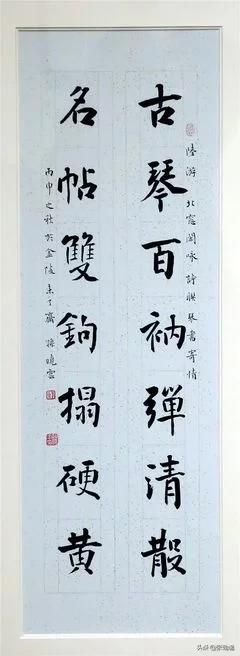 陸游 北窗閒咏 詩聯 琴書寄情
古琴百衲彈清散
名帖雙鉤搨硬黄
丙申之秋於金陵未了齋 孫曉雲